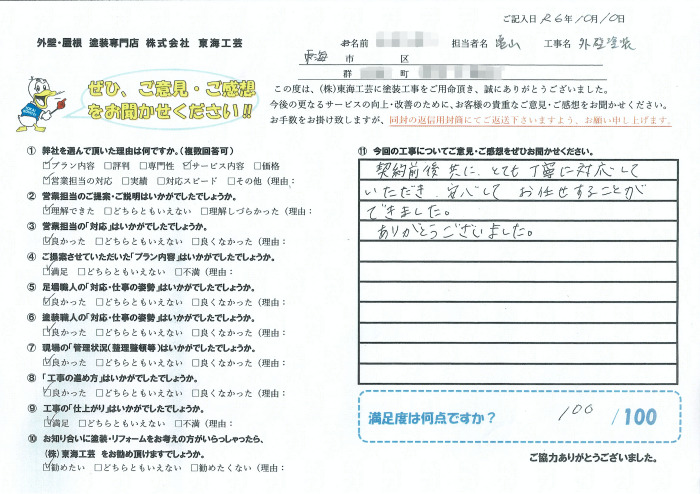 ご記入日 R6年10月10日
外壁・屋根 塗装専門店 株式会社 東海工芸
お名前 担当者名 亀山 工事名 外壁塗装
東海 市 区
群 町
ぜひ、ご意見・ご感想
をお聞かせください!!
この度は、(株)東海工芸に塗装工事をご用命頂き、誠にありがとうございました。
今後の更なるサービスの向上・改善のために、お客様の貴重なご意見・ご感想をお聞かせください。
お手数をお掛け致しますが、同封の返信用封筒にてご返送下さいますよう、お願い申し上げます。
① 弊社を選んで頂いた理由は何ですか。(複数回答可)
☑プラン内容 □評判 □専門性 ☑サービス内容 □価格
☑営業担当の対応 □実績 □対応スピード □その他(理由:
② 営業担当のご提案・ご説明はいかがでしたでしょうか。
☑理解できた □どちらともいえない □理解しづらかった(理由:
③ 営業担当の「対応」はいかがでしたでしょうか。
☑良かった □どちらともいえない □良くなかった(理由:
④ ご提案させていただいた「プラン内容」はいかがでしたでしょうか。
☑満足 □どちらともいえない □不満(理由:
⑤ 足場職人の「対応・仕事の姿勢」はいかがでしたでしょうか。
☑良かった □どちらともいえない □良くなかった(理由:
⑥ 塗装職人の「対応・仕事の姿勢」はいかがでしたでしょうか。
☑良かった □どちらともいえない □良くなかった(理由:
⑦ 現場の「管理状況(整理整頓等)はいかがでしたでしょうか。
☑良かった □どちらともいえない □良くなかった(理由:
⑧ 「工事の進め方」はいかがでしたでしょうか。
☑良かった □どちらともいえない □良くなかった(理由:
⑨ 工事の「仕上がり」はいかがでしたでしょうか。
☑満足 □どちらともいえない □不満(理由:
⑩ お知り合いに塗装・リフォームをお考えの方がいらっしゃったら、
(株)東海工芸 をお勧め頂けますでしょうか。
☑勧めたい □どちらともいえない □勧めたくない(理由:
⑪ 今回の工事についてご意見・ご感想をお聞かせください。
契約前後共に、とても丁寧に対応して
いただき、安心して お任せすることが
できました。
ありがとうございました。
満足度は何点ですか? 100 /100
ご協力ありがとうございました。